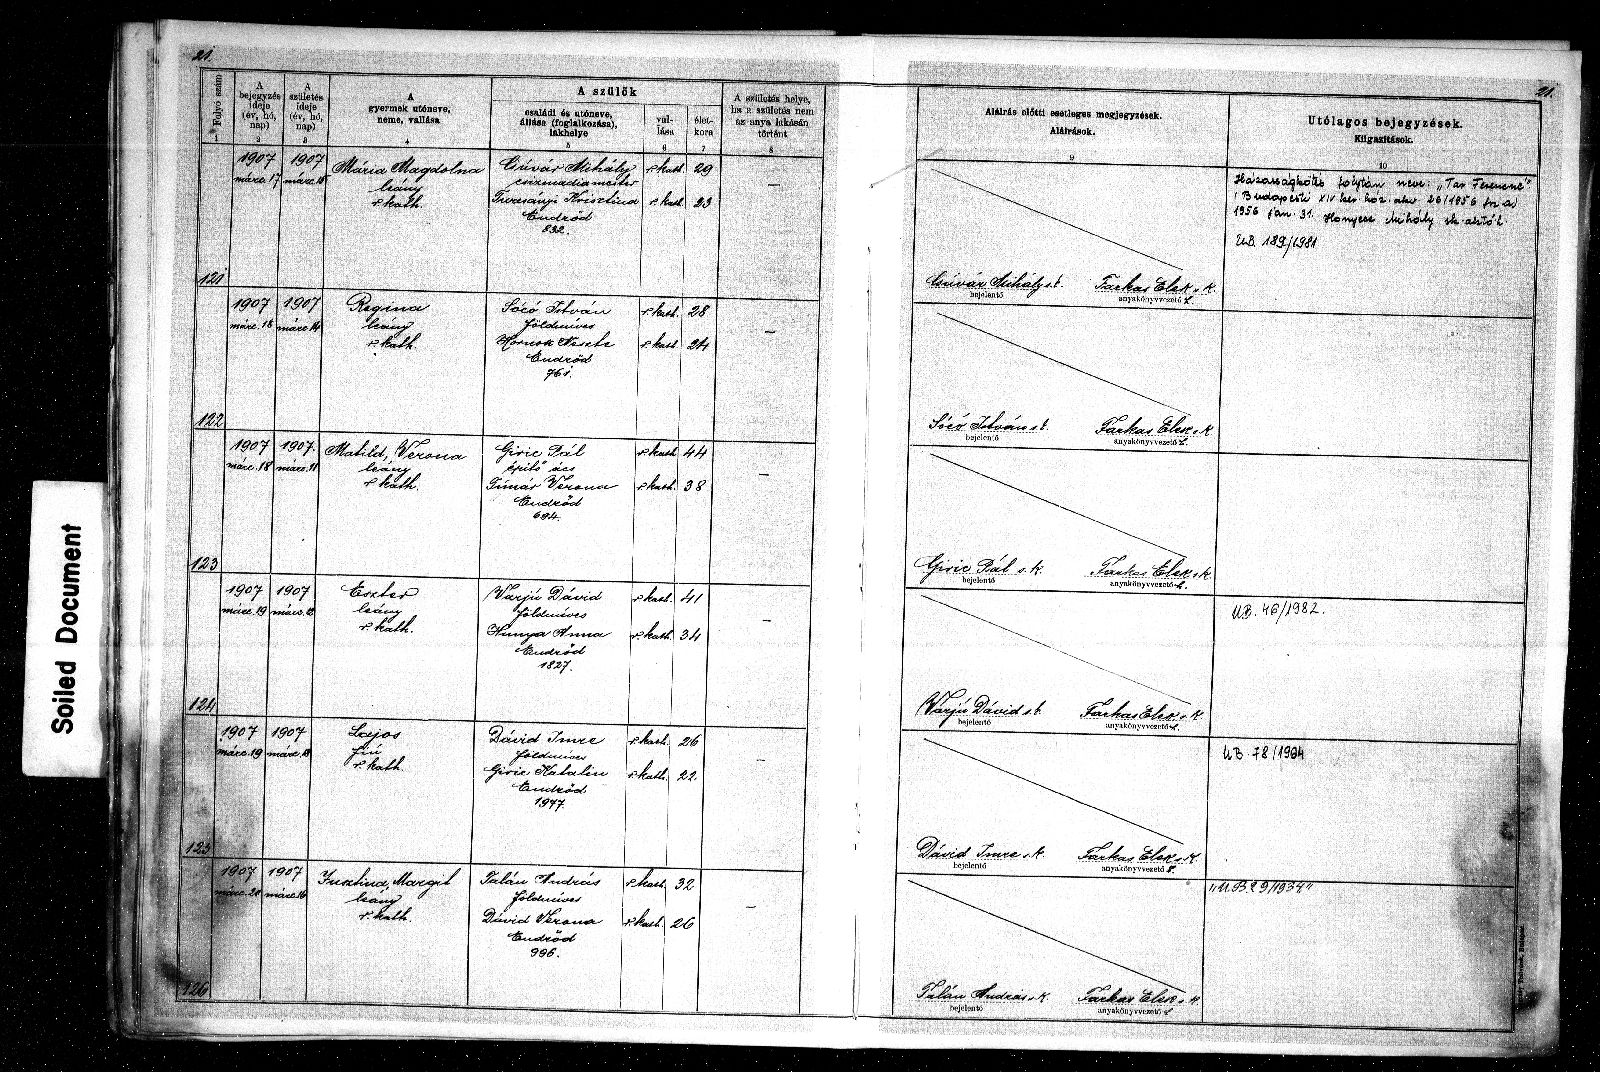 21.
21.
Soiled Document
Folyó szám
A bejegyzés ideje (év, hó, nap)
A születés ideje (év, hó, nap)
A gyermek utóneve, neme, vallása
A szülők
családi és utóneve, állása (foglalkozása), lakhelye
vallása
életkora
A születés helye, ha a születés nem az anya lakásán történt
Aláírás előtti esetleges megjegyzések.
Aláírások.
Utólagos bejegyzések.
Kiigazítások.
1 2 3 4 5 6 7 8 9 10
121
1907 márc. 17
1907
Mária Magdolna
leány
r. kath.
Csúvár Mihály r. kath. 29
csizmadia mester
Krisztina r. kath. 23
Endrőd
832.
—
Csúvár Mihály s.k. Farkas Elek s.k.
bejelentő anyakönyvvezető h.
Házasságkötés folytán neve: „Tar Ferencné"
1956 jan. 31.
UB. 189/1981
122
1907 márc. 18
1907 márc. 14
Regina
leány
r. kath.
Sócó István r. kath. 28
földmíves
Hornok Neszta r. kath. 24
Endrőd
761.
—
Sócó István s.k. Farkas Elek s.k.
bejelentő anyakönyvvezető h.
123
1907 márc. 18
1907 márc. 11
Matild, Verona
leány
r. kath.
Giric Pál r. kath. 44
építő ács
Tímár Verona r. kath. 38
Endrőd
694.
—
Giric Pál s.k. Farkas Elek s.k.
bejelentő anyakönyvvezető h.
124
1907 márc. 19
1907 márc.
Eszter
leány
r. kath.
Varjú Dávid r. kath. 41
földmíves
Hunya Anna r. kath. 34
Endrőd
1827.
—
Varjú Dávid s.k. Farkas Elek s.k.
bejelentő anyakönyvvezető h.
UB. 46/1982.
125
1907 márc. 19
1907 márc. 18
Lajos
fiú
r. kath.
Dávid Imre r. kath. 26
földmíves
Giric Katalin r. kath. 22
Endrőd
1947.
—
Dávid Imre s.k. Farkas Elek s.k.
bejelentő anyakönyvvezető h.
UB 78/1984
126
1907 márc. 20
1907 márc. 16
Jusztina, Margit
leány
r. kath.
Talán András r. kath. 32
földmíves
Dávid Verona r. kath. 26
Endrőd
996.
—
Talán András s.k. Farkas Elek s.k.
bejelentő anyakönyvvezető h.